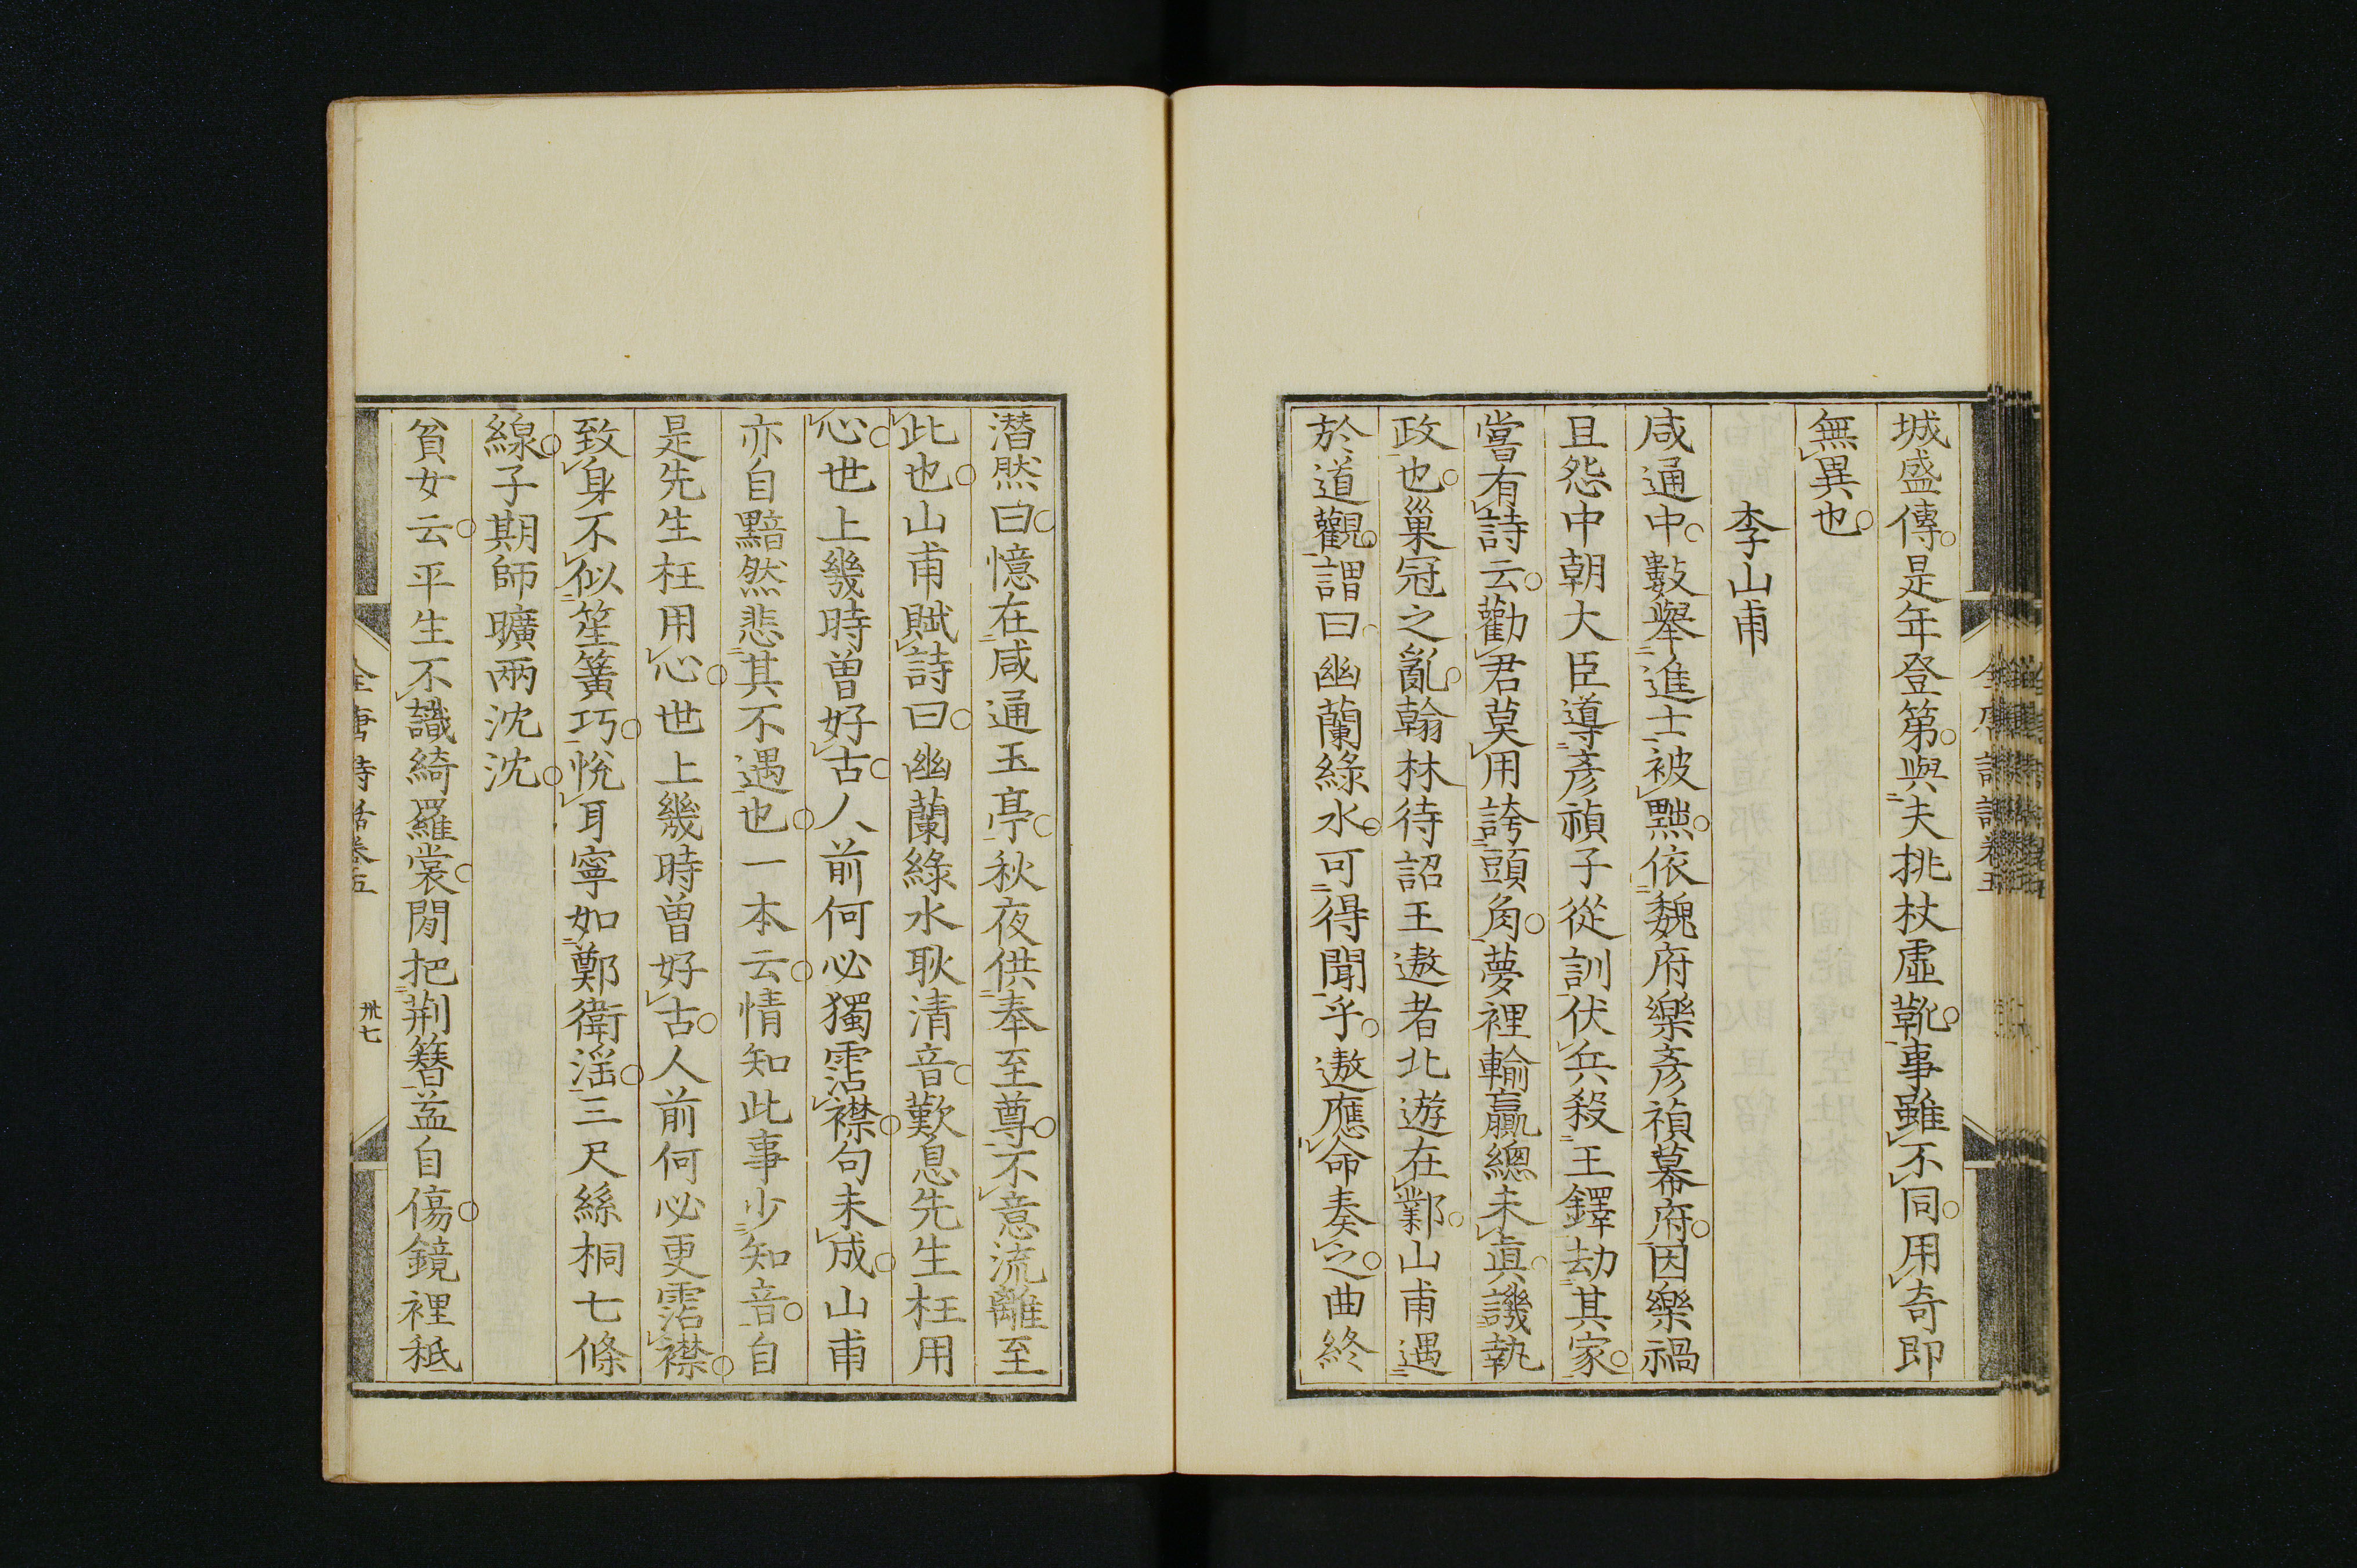 城盛傳是年登第與夫挑杖虛靴事雖不同用奇即
無異也
李山甫
咸通中數舉進士被黜依魏府樂彥禎幕府因樂禍
且怨中朝大臣導彥禎子從訓伏兵殺王鐸劫其家
嘗有詩云勸君莫用誇頭角夢裡輸贏總未真譏執
政也巢冠之亂翰林待詔王遨者北遊在鄴山甫遇
於道觀謂曰幽蘭綠水可得聞乎遨應命奏之曲終
潛然曰憶在咸通玉亭秋夜供奉至尊不意流離至
此也山甫賦詩曰幽蘭綠水耿清音歎息先生枉用
心世上幾時曾好古人前何必獨霑襟句未成山甫
亦自黯然悲其不遇也一本云情知此事少知音自
是先生枉用心世上幾時曾好古人前何必更霑襟
致身不似笙簧巧悅耳寧如鄭衛淫三尺絲桐七條
線子期師曠兩沈沈
貧女云平生不識綺羅裳閒把荆簪益自傷鏡裡秖
全唐詩話卷五
卅七